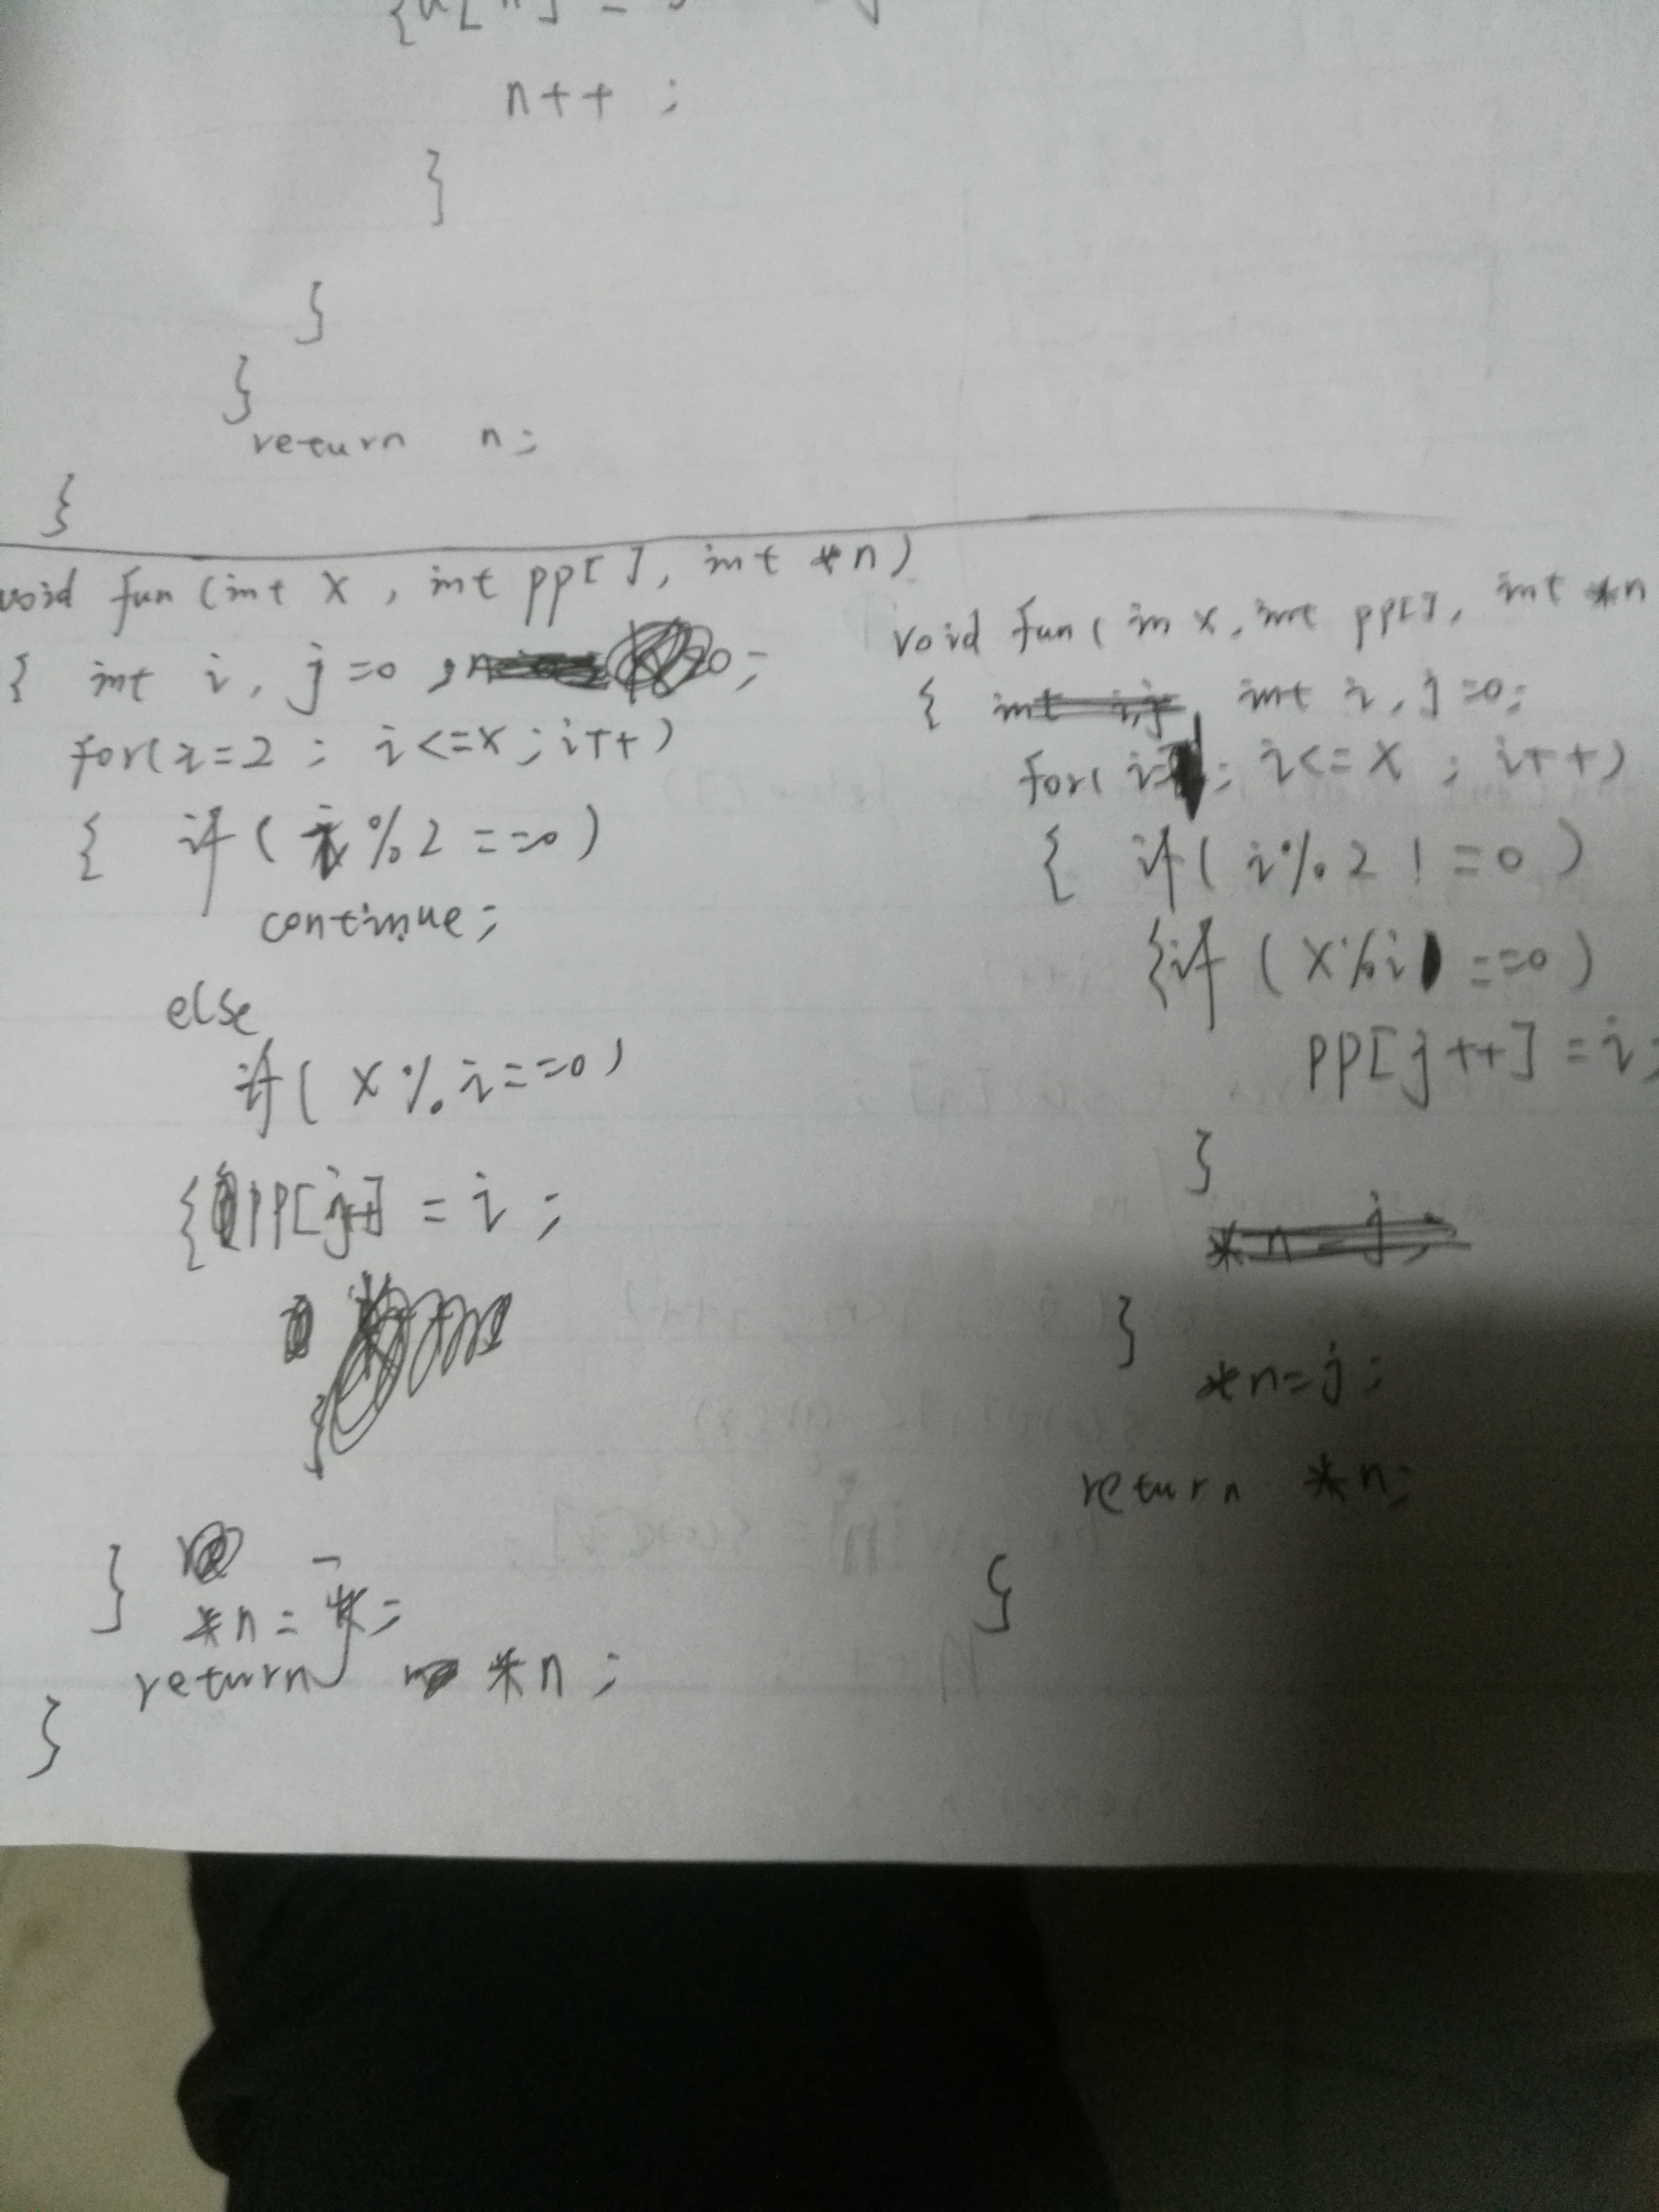 n++ ;
}
}
}
return n;
}
void fun (int x , int pp[ ], int *n)
{ int i, j=0 ;
for(i=2 ; i<=x ; i++)
{ if ( i%2 ==0)
continue;
else
if( x%i==0)
{ pp[j++] = i ;
}
}
*n = j;
return *n ;
}
void fun( in x, int pp[], int *n
{ int i, j=0;
for( i=1; i<=x ; i++)
{ if( i%2 !=0 )
{if (x%i ==0)
pp[j++] = i;
}
}
*n=j;
return *n;
}